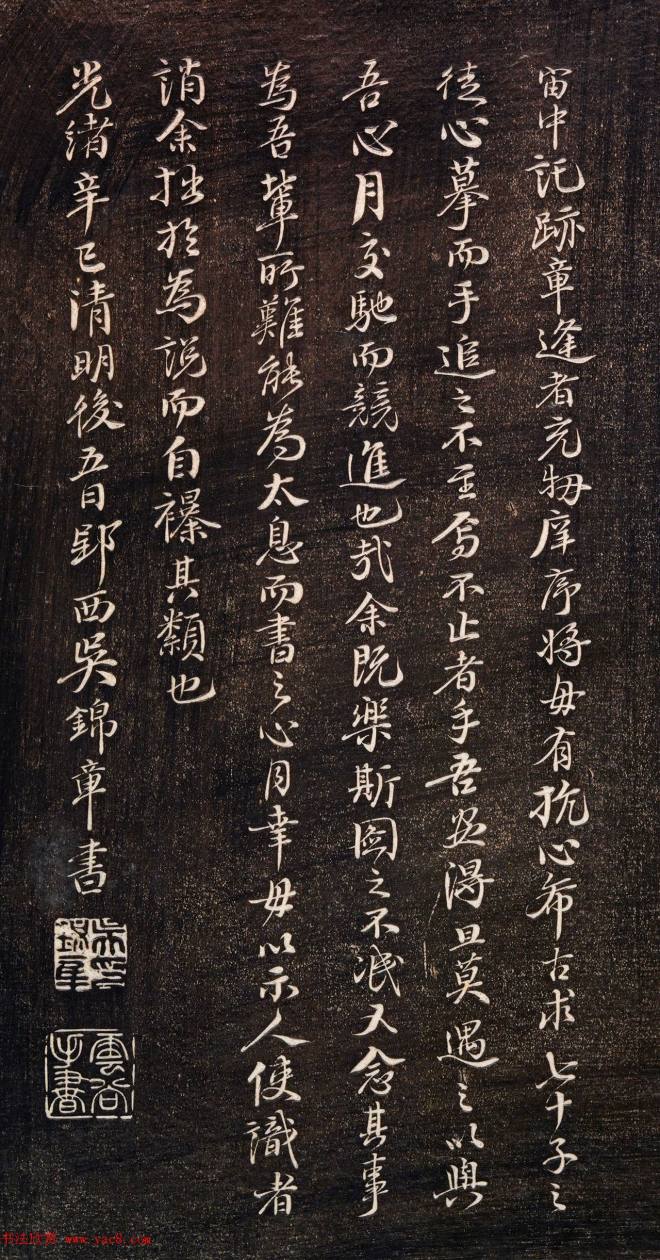 宙中託跡章逢者充牣庠序將毋有抗心希古求七十子之
徒心摹而手追之不至焉不止者乎吾安得旦莫遇之以與
吾心月交馳而競進也哉余既樂斯圖之不泯又念其事
為吾輩所難能為太息而書之心月幸毋以示人使識者
誚余拙於為說而自襮其纇也
光緒辛巳清明後五日鄖西吳錦章書
吳印錦章
雲谷手書
书法欣赏 www.yac8.com